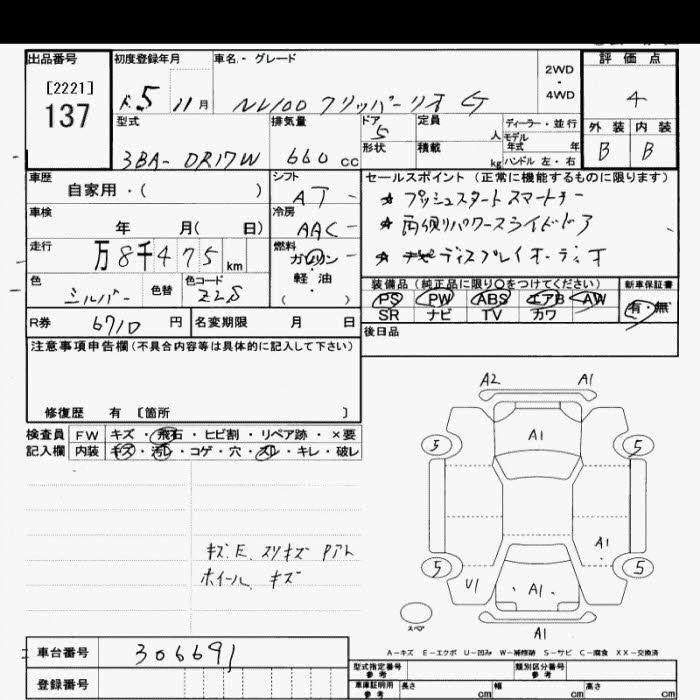 出品番号
[2221]
137
初度登録年月
R 5 11 月
車名・グレード
NV100 クリッパーリオ G
2WD
・
4WD
評価点
4
外装 内装
B B
型式
3BA- DR17W
排気量
660 cc
ドア
5
形状
定員
人
積載
kg
ディーラー・並行
モデル
年式 年
ハンドル 左・右
車歴
自家用・( )
シフト
AT
車検
年 月( 日)
冷房
AAC
走行
万 8千475 km
燃料
ガソリン
軽・油
( )
色
シルバー
色替
色コード
Z2S
R券
6710 円
名変期限 月 日
セールスポイント(正常に機能するものに限ります)
☆ プッシュスタート スマートキー
☆ 両側リパワースライドドア
☆ ディスプレイオーディオ
装備品(純正品に限り○をつけてください)
PS PW ABS エアB AW
SR ナビ TV カワ
新車保証書
有・無
後日品
注意事項申告欄(不具合内容等は具体的に記入して下さい)
修復歴 有 〔箇所 〕
検査員
記入欄
FW キズ・飛石・ヒビ割・リペア跡・×要
内装 キズ・汚レ・コゲ・穴・スレ・キレ・破レ
キズ.E. スリキズ Pアト
ホイール キズ
A2 A1
A1
5 5
A1
5 5
U1
A1
A1
スペア
A-キズ E-エクボ U-凹み W-補修跡 S-サビ C-腐食 XX-交換済
車台番号
306691
登録番号
型式指定番号
参考
類別区分番号
車庫証明用
参考
長さ cm 幅 cm 高さ cm